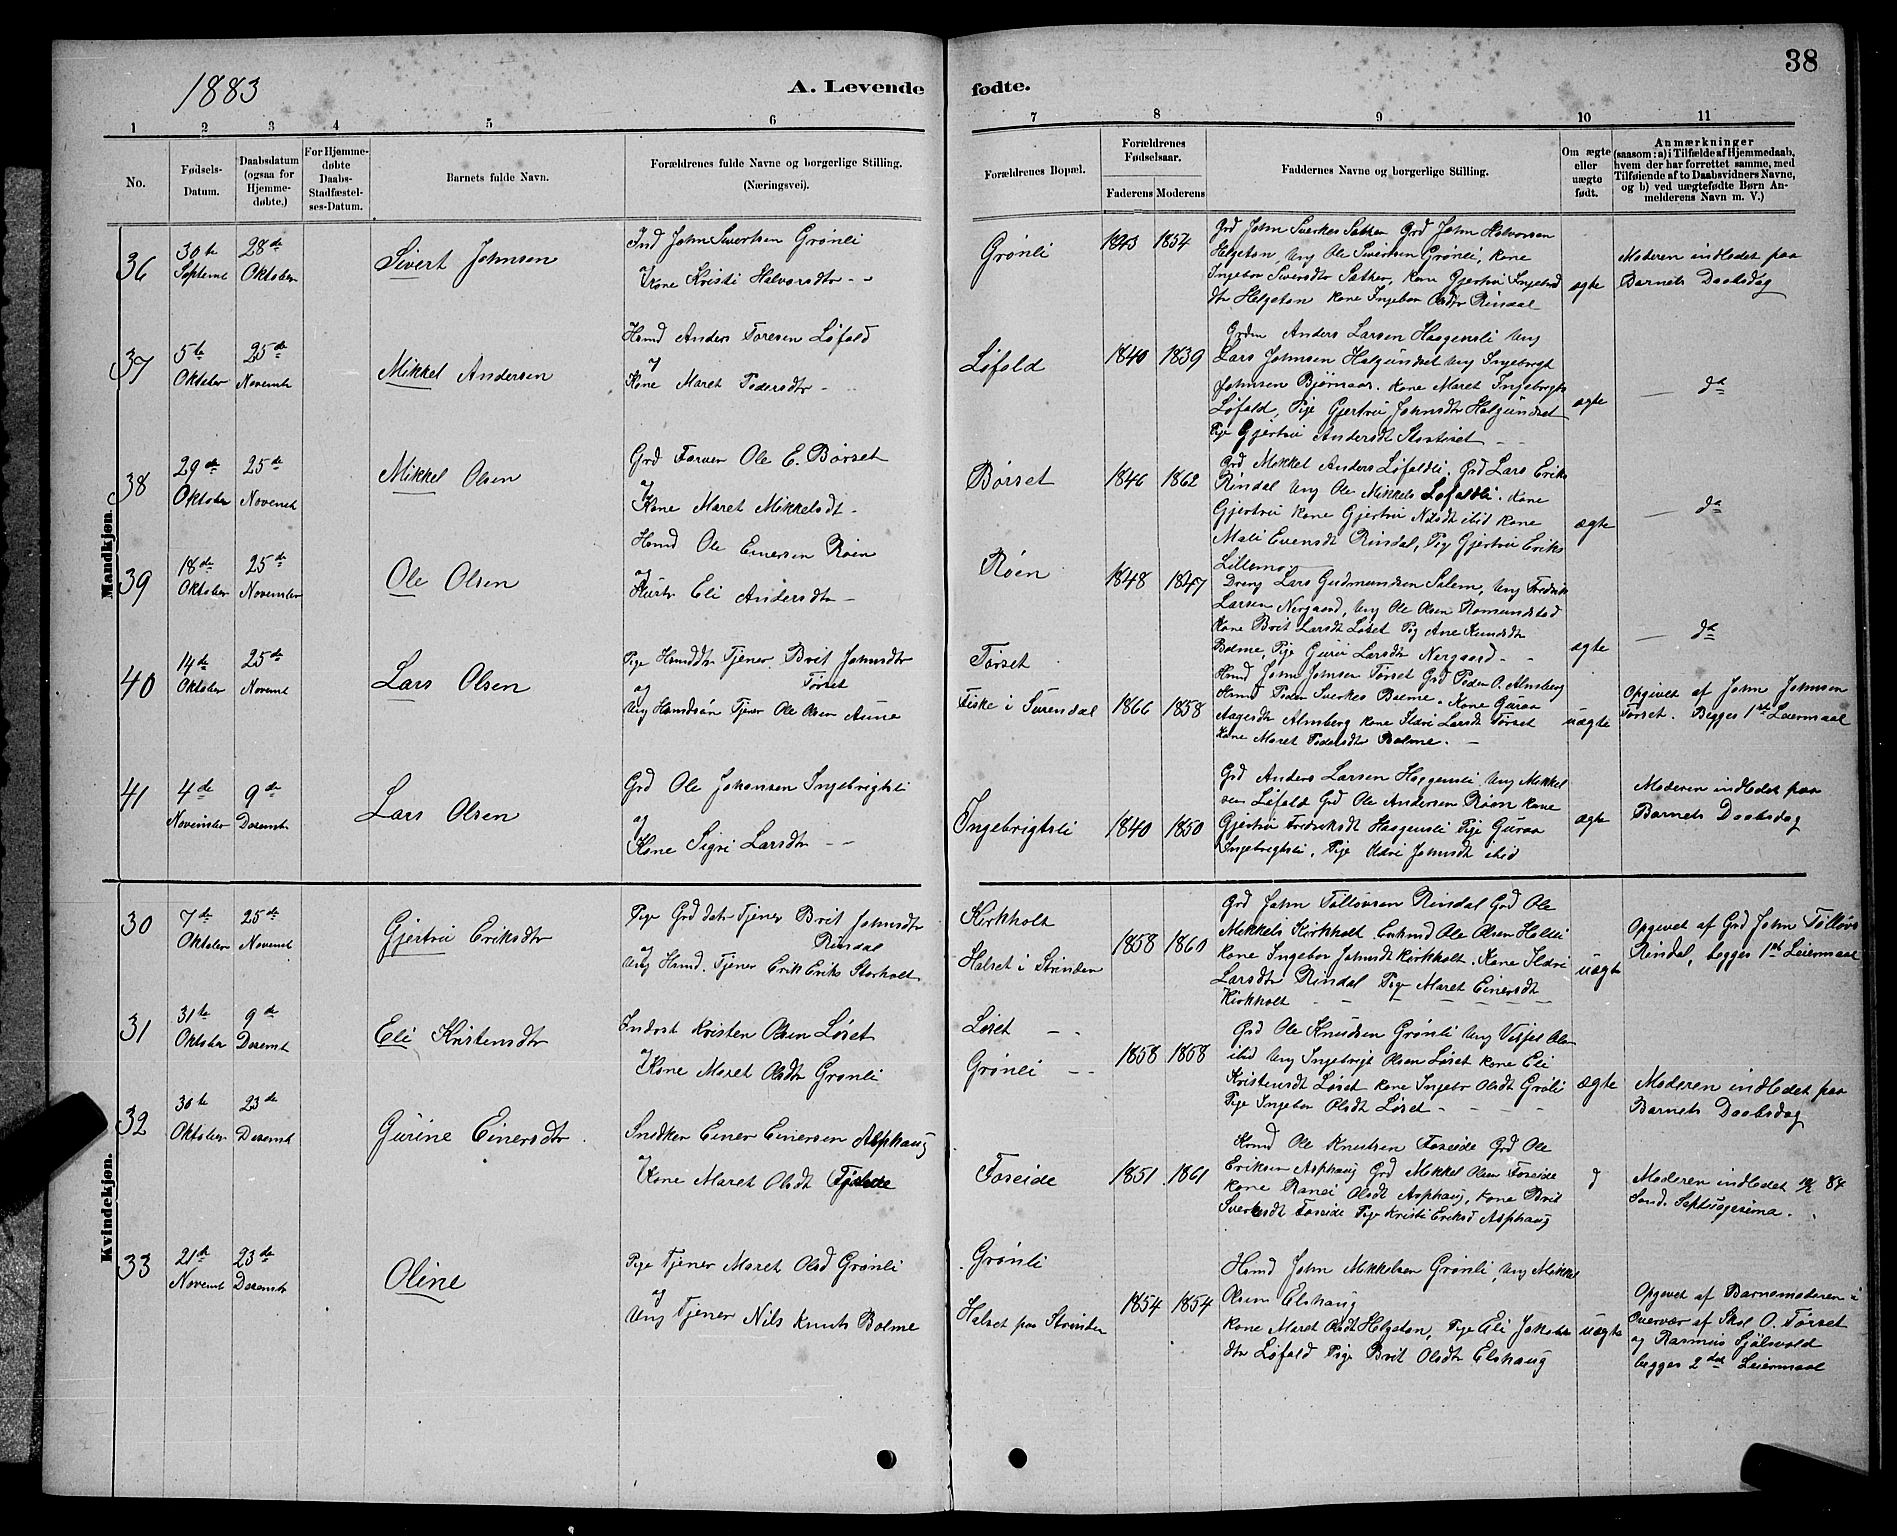 1883
A. Levende
fødte.
38
1 2 3 4 5 6 7 8 9 10 11
No.
Fødsels-
Datum.
Daabsdatum
(ogsaa for
Hjemme-
døbte.)
For Hjemme-
døbte
Daabs-
Stadfæstel-
ses-Datum.
Barnets fulde Navn.
Forældrenes fulde Navne og borgerlige Stilling.
(Næringsvei).
Forældrenes Bopæl.
Forældrenes
Fødselsaar.
Faderens Moderens
Faddernes Navne og borgerlige Stilling.
Om ægte
eller
uægte
født.
Anmærkninger
(saasom: a) i Tilfælde af Hjemmedaab,
hvem der har forrettet samme, med
Tilføiende af to Daabsvidners Navne,
og b) ved uægtefødte Børn An-
melderens Navn m. V.)
Mandkjøn.
36
30te
Septemt
28de
Oktober
Sivert Johnsen
Ind John Sivertsen Grønli
Kone Kristi Halvorsdtr - -
Grønli
1843 1854
Grd John Sverkes Sæther Grd John Halvorsen
Helgeton, Ung Ole Sivertsen Grønli, Kone
Ingebor Siversdtr Sæther, Kone Gjertru Ingebrid
dtr Helgeton Kone Ingebor Olsdtr Rindal
ægte
Moderen indledet paa
Barnets Daabsdag
37
5te
Oktober
25de
Novembr
Mikkel Andersen
Hsmd Anders Toresen Løfald
og
Kone Maret Pedersdtr - -
Løfald
1840 1839
Grdm Anders Larsen Haagensli Ung
Lars Johnsen Halgundset Ung Ingebrigt
Johnsen Bjørnaas. Kone Maret Ingebrigts
Løfald, Pige Gjertru Johnsdtr Halgundset
Pige Gjertru Andersdt
ægte
— da
38
29de
Oktober
25de
Novembt
Mikkel Olsen
Grd Farver Ole E. Børset
og
Kone Maret Mikkelsdt -
Børset
1846 1862
Grd Mikkel Anders Løfaldli. Grd Lars Eriks
Rindal Ung Ole Mikkels Løfaldli. Kone
Gjertru Kone Gjertru Nilsdt ibid Kone
Mali Evensdt Rindal, Pig Gjertru Eriks
Lillemo
ægte
— da
39
18de
Oktober
25de
November
Ole Olsen
Hsmd Ole Einersen Røen
og
Hustr Eli Andersdtr -
Røen
1848 1847
Dreng Lars Gudmundsen Salem, Ung Fredrik
Larsen Nergaard, Ung Ole Olsen Romundstad
Kone Brit Larsdt Løset Pig Ane Knudsdtr
Bolme, Pige Guru Larsdtr Nergaard - -
ægte
— da
40
14de
Oktober
25de
Novemt
Lars Olsen
Pige Hsmddtr Tjener Brit Johnsdtr
Tørset
og
Ung Hsmdsøn Tjener Ole Olsen Aune
Tørset
Fiske i Surendal
1866 1858
Hsmd John Johnsen Tørset Grd Peder O. Almberg
Hsmd Peder Sverkes Bolme. Kone Guraa
Aagesdtr Almberg Kone Ildri Larsdt Tørset
Kone Maret Pedersdtr Bolme. -
uægte
Opgivet af John Johnsen
Tørset. Begges 1ste Leiermaal
41
4de
November
9de
Desembr
Lars Olsen
Grd Ole Johansen Ingebrigtsli
og
Kone Sigri Larsdtr - -
Ingebrigtsli
1840 1850
Grd Anders Larsen Haggensli Ung Mikkel
sen Løfald Grd Ole Andersen Røen Kone
Gjertru Fredriksdt Haagensli Pige Guraa
Ingebrigtsli, Pige Ildri Johnsdt ibid
ægte
Moderen indledet paa
Barnets Daabsdag
Kvindekjøn.
30
7de
Oktober
25de
Novemt
Gjertru Eriksdtr
Pige Grd datr Tjener Brit Johnsdtr
Rindal
og
Ung Hsmd. Tjener Erik Eriks Storholt
Kirkholt
Halset i Strinden
1858 1860
Grd John Tølløvsen Rindal Grd Ole
Mikkels Kirkholt Ole Olsen
Kone Ingebor Johnsdt Kirkholt. Kone Ildri
Larsdtr Rindal Pige Maret Einersdtr
Kirkholt - - - - -
uægte
Opgivet af Grd John Tølløvs
Rindal, begges 1ste Leiermaal
31
31te
Oktober
9de
Desemt
Eli Kristensdtr
Inderst Kristen Olsen Løset
Kone Maret Olsdtr Grønli
Løset - -
Grønli - -
1858 1858
Grd Ole Knudsen Grønli Ung Olsen
ibid Ung Ingebrigt Olsen Løset Kone Eli
Kristensdt Løset Kone Ingebr Olsdt Grøli
Pige Ingebor Olsdt Løset - - - -
ægte
Moderen indledet paa
Barnets Daabsdag
32
30te
Oktober
23de
Desemt
Gurine Einersdtr
Snedker Einer Einersen Asphaug
Kone Maret Olsdt
Foseide
1851 1861
Hsmd Ole Knutsen Foseide Grd Ole
Eriksen Asphaug Grd Mikkel Olsen Foseide
Kone Olsdt Asphaug, Kone Brit
Sverkesdt Foseide Pige Kristi Eriksd Asphaug
d
Moderen indledet 10/2 84
Sønd. Septuagesima.
33
21de
Novemt
23de
Desemt
Oline
Pige Tjener Maret Olsd Grønli
og
Ung Tjener Nils Knuts Bolme
Grønli
Halset paa Strinden
1854 1854
Hsmd John Mikkelsen Grønli, Ung Mikkel
Olsen Elshaug
Kone Maret Olsdt Helgeton, Pige Eli Jakobs
dtr Løfald Pige Brit Olsdtr Elshaug
uægte
Opgivet af Barnemoderen i
Overvær af Skol O. Tørset
og Rasmus Sjølsvold
begges 2det Leiermaal